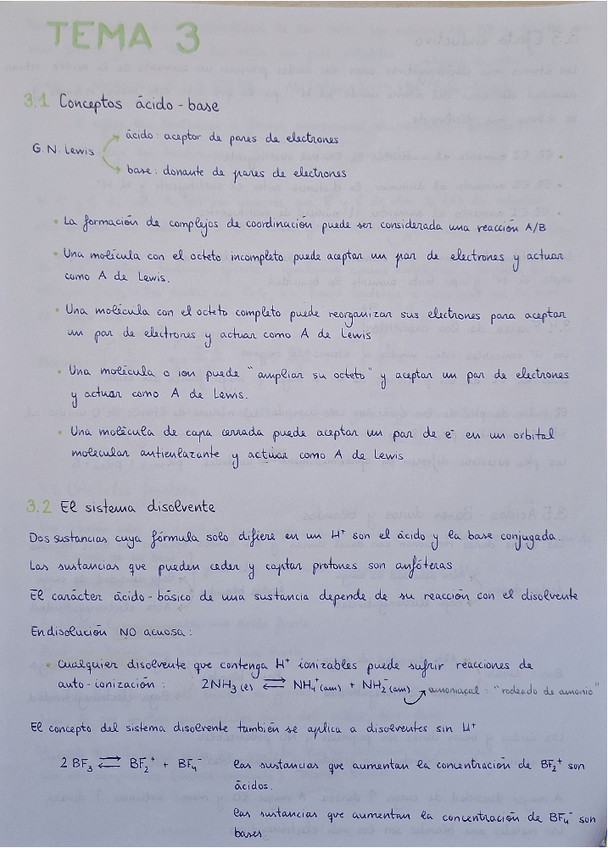 TEMA 3
3.1 Conceptos ácido-base
G.N. Lewis
ácido: aceptor de pares de electrones
base: donante de pares de electrones
• La formación de complejos de coordinación puede ser considerada una reacción A/B
• Una molécula con el octeto incompleto puede aceptar un par de electrones y actuar
como A de Lewis.
• Una molécula con el octeto completo puede reorganizar sus electrones para aceptar
un par de electrones y actuar como A de Lewis
• Una molécula o ion puede "ampliar su octeto" y aceptar un par de electrones
y actuar como A de Lewis.
• Una molécula de capa cerrada puede aceptar un par de e⁻ en un orbital
molecular antienlazante y actuar como A de Lewis
3.2 El sistema disolvente
Dos sustancias cuya fórmula solo difiere en un H⁺ son el ácido y la base conjugada.
Las sustancias que pueden ceder y captar protones son anfóteras
El carácter ácido-básico de una sustancia depende de su reacción con el disolvente
En disolución NO acuosa:
• Cualquier disolvente que contenga H⁺ ionizables puede sufrir reacciones de
auto-ionización: 2NH₃(l) ⇌ NH₄⁺(am) + NH₂⁻(am) amoniacal: "rodeado de amonio"
El concepto del sistema disolvente también se aplica a disolventes sin H⁺
2 BF₃ ⇌ BF₂⁺ + BF₄⁻ las sustancias que aumentan la concentración de BF₂⁺ son
ácidos.
las sustancias que aumentan la concentración de BF₄⁻ son
bases.